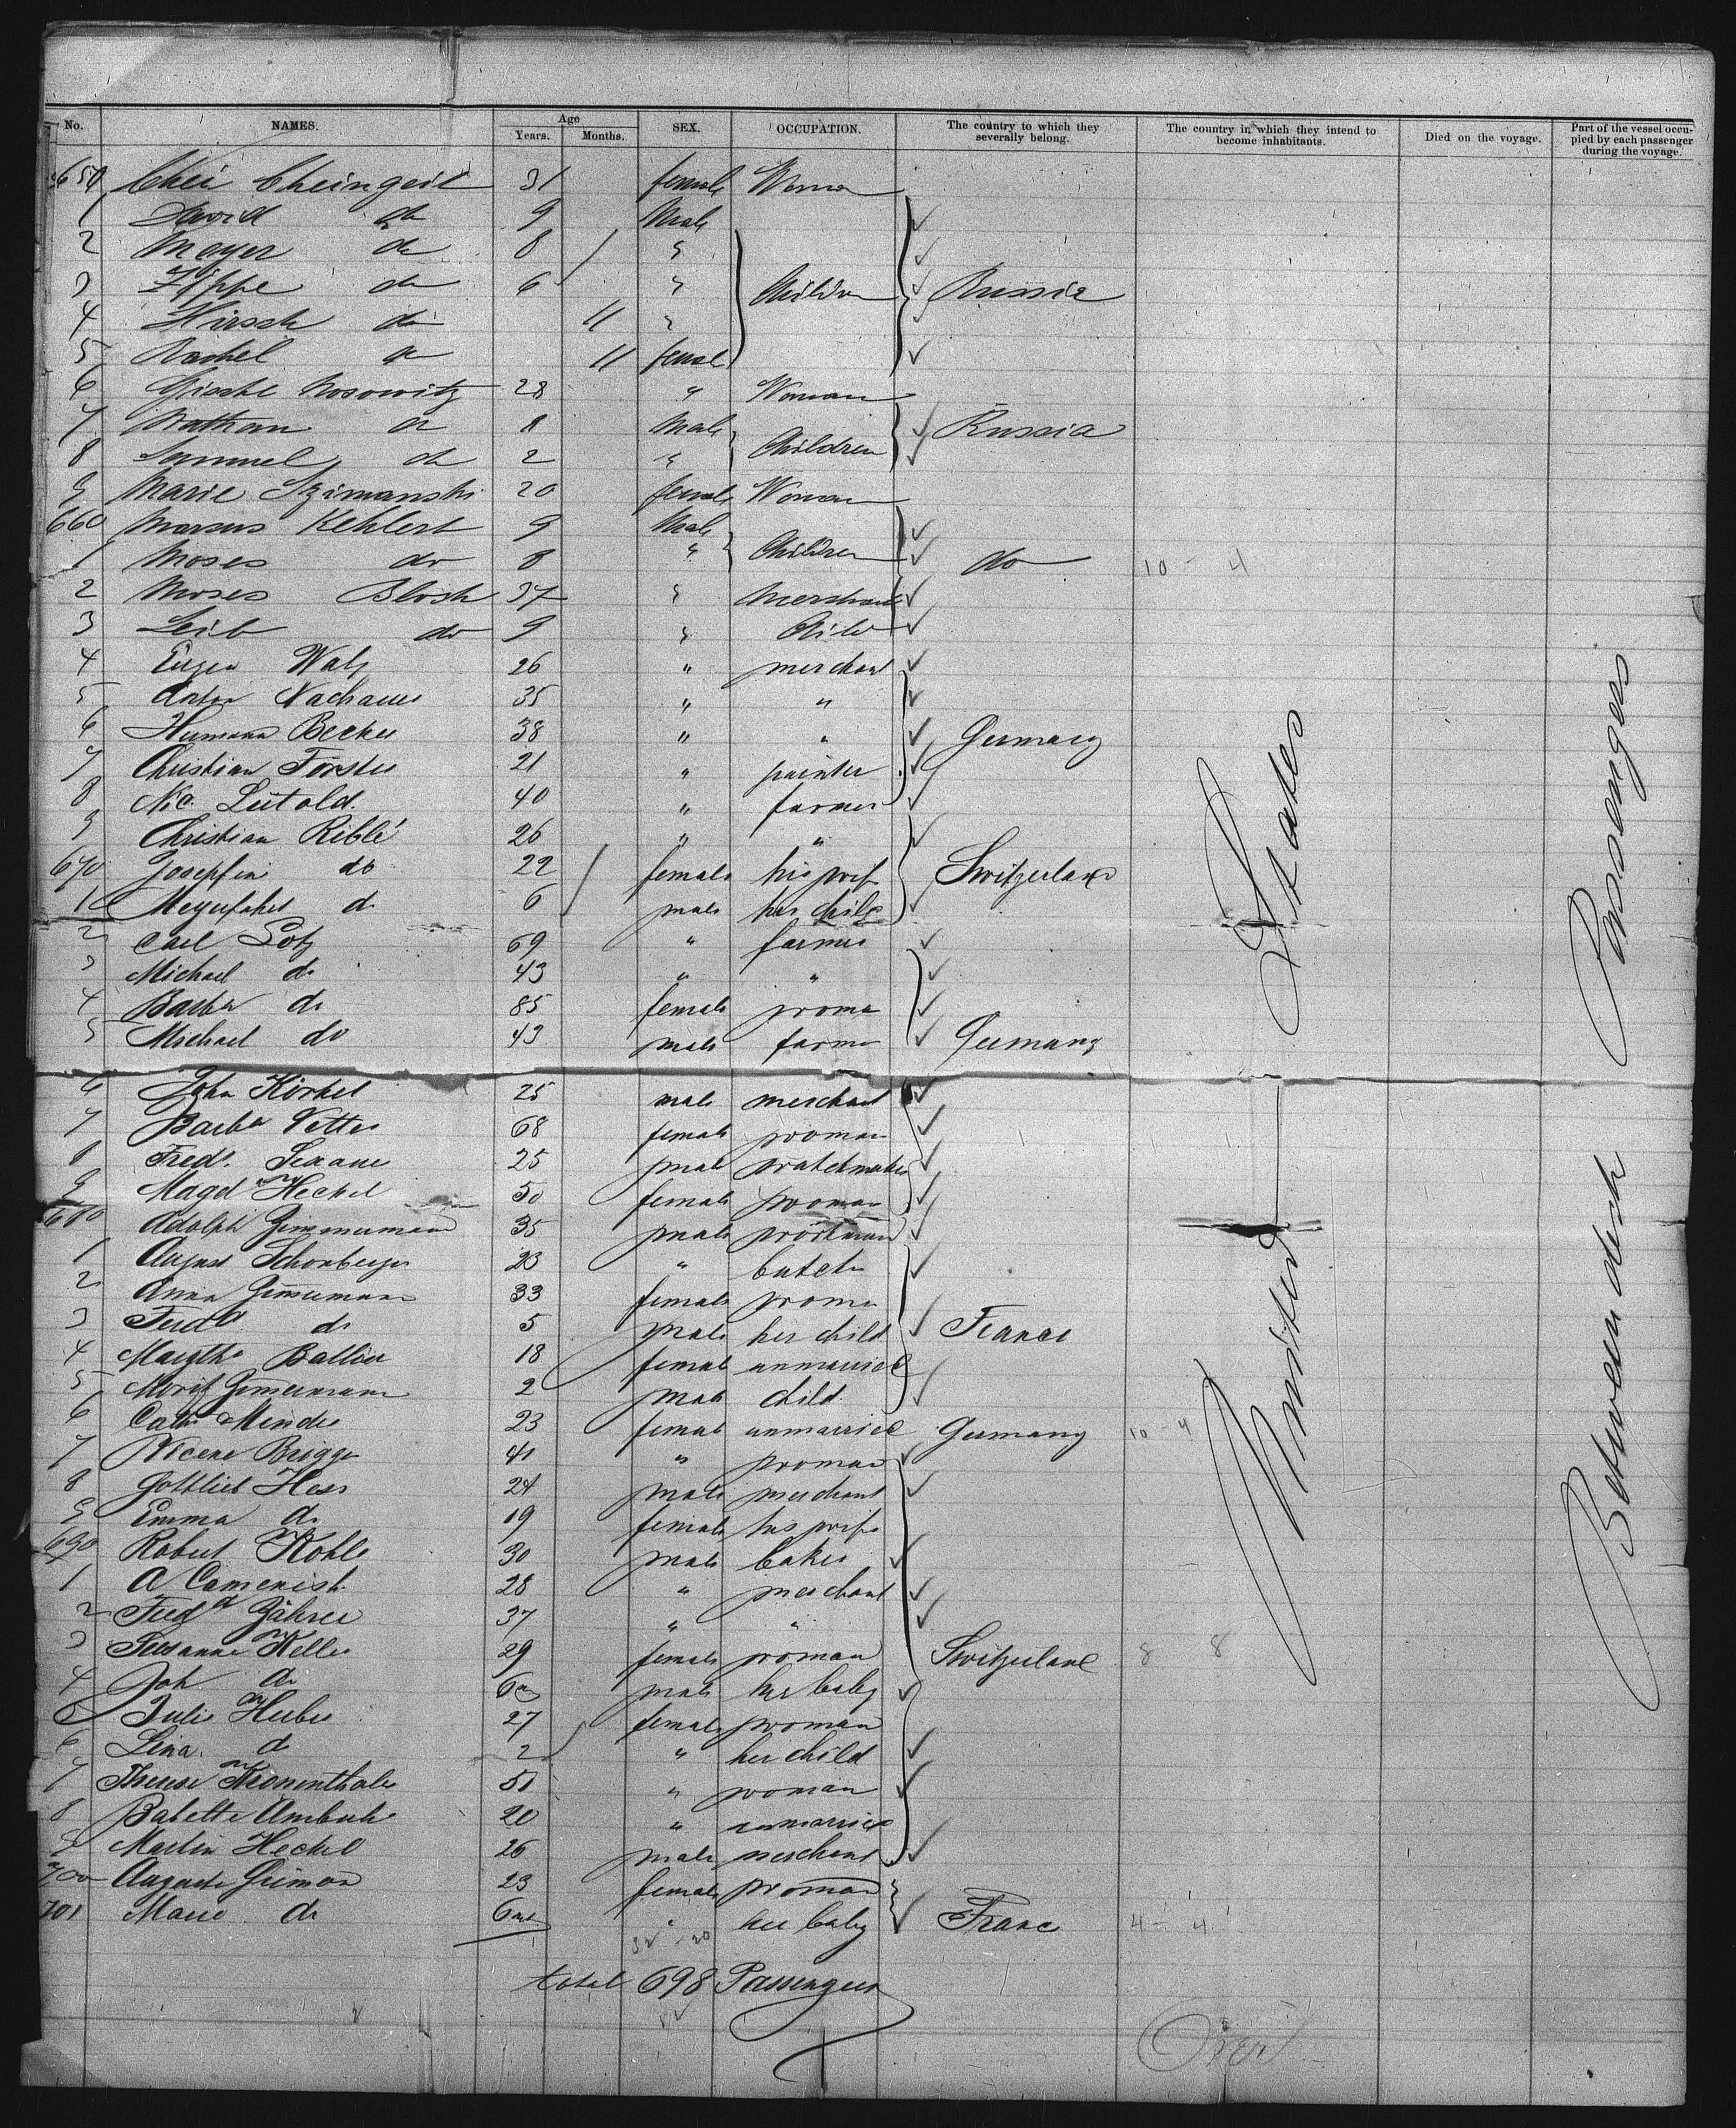 No. NAMES. Age Years. Months. SEX. OCCUPATION. The country to which they severally belong. The country in which they intend to become inhabitants. Died on the voyage. Part of the vessel occupied by each passenger during the voyage.
650 31 female
1 David do 9 Male
2 Meyer do 8 "
3 Zippe do 6 " Children Russia
4 Hirsch do 11 "
5 Rachel do 11 female
6 28 " Woman
7 Nathan do 8 Male Russia
8 Samuel do 2 " Children
9 Marie Szimanski 20 female Woman
660 Marcus Kehlert 9 Male
1 Moses do 8 " Children do 10 - 4
2 Moses Bloch 37 " Merchant
3 Leib do 9 " Child
4 Eugen Walz 26 " merchant
5 Anton 35 " "
6 Hermann Becker 38 " " Germany
7 Christian Forster 21 " painter
8 Nic. Lutold. 40 " farmer
9 Christian Riblé 26 " "
670 Josephin do 22 female his wife Switzerland
1 do 6 male her child
2 Carl Lotz 69 " farmer
3 Michael do 43 " "
4 Barba do 85 female woman
5 Michael do 43 male farmer Germany
6 John Körkel 25 male merchant
7 Barba Vetter 68 female woman
8 Fredr. 25 male watchmaker
9 Magd Heckel 50 female woman
680 Adolph Zimmermann 35 male workman
1 August Schonberger 23 " butcher
2 Anna Zimmermann 33 female woman
3 Ferdd do 5 male her child France
4 Margtha 18 female unmarried
5 Moritz Zimmermann 2 male child
6 Cath Minder 23 female unmarried Germany 10 - 4
7 41 " woman
8 Gottlieb Hess 24 male merchant
9 Emma do 19 female his wife
690 Robert Kohle 30 male baker
1 A Camenish 28 " merchant
2 Fredd Bährer 37 " "
3 Susanne Keller 29 female woman Switzerland 8 8
4 Joh do 6m male her baby
5 Julie Huber 27 female woman
6 Lina. do 2 " her child
7 Therese Kronenthaler 51 " woman
8 Babette Ambuhl 20 " unmarried
9 Martin Heckel 26 male merchant
700 Auguste Grimon 23 female woman
701 Marie do 6ms " her baby Franc 4 - 4
32 - 20
total 698 Passengers
Over
United States
Between deck Passengers